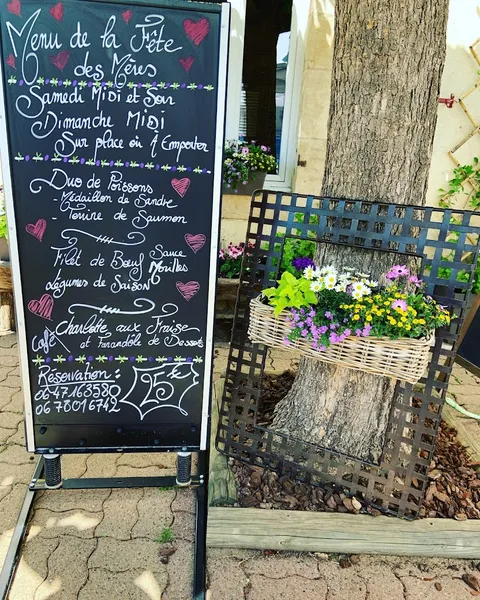 Menu de la Fête
des Mères
Samedi MIDI et Soir
Dimanche MIDI
Sur place ou À Emporter
Duo de Poissons
- Médaillon de Sandre
- Terrine de Saumon
Filet de Bœuf Sauce Morilles
Légumes de Saison
Charlotte aux Fraise
Café et Farandole de Desserts
Réservation :
06 47 16 35 80
06 78 01 67 42
25€